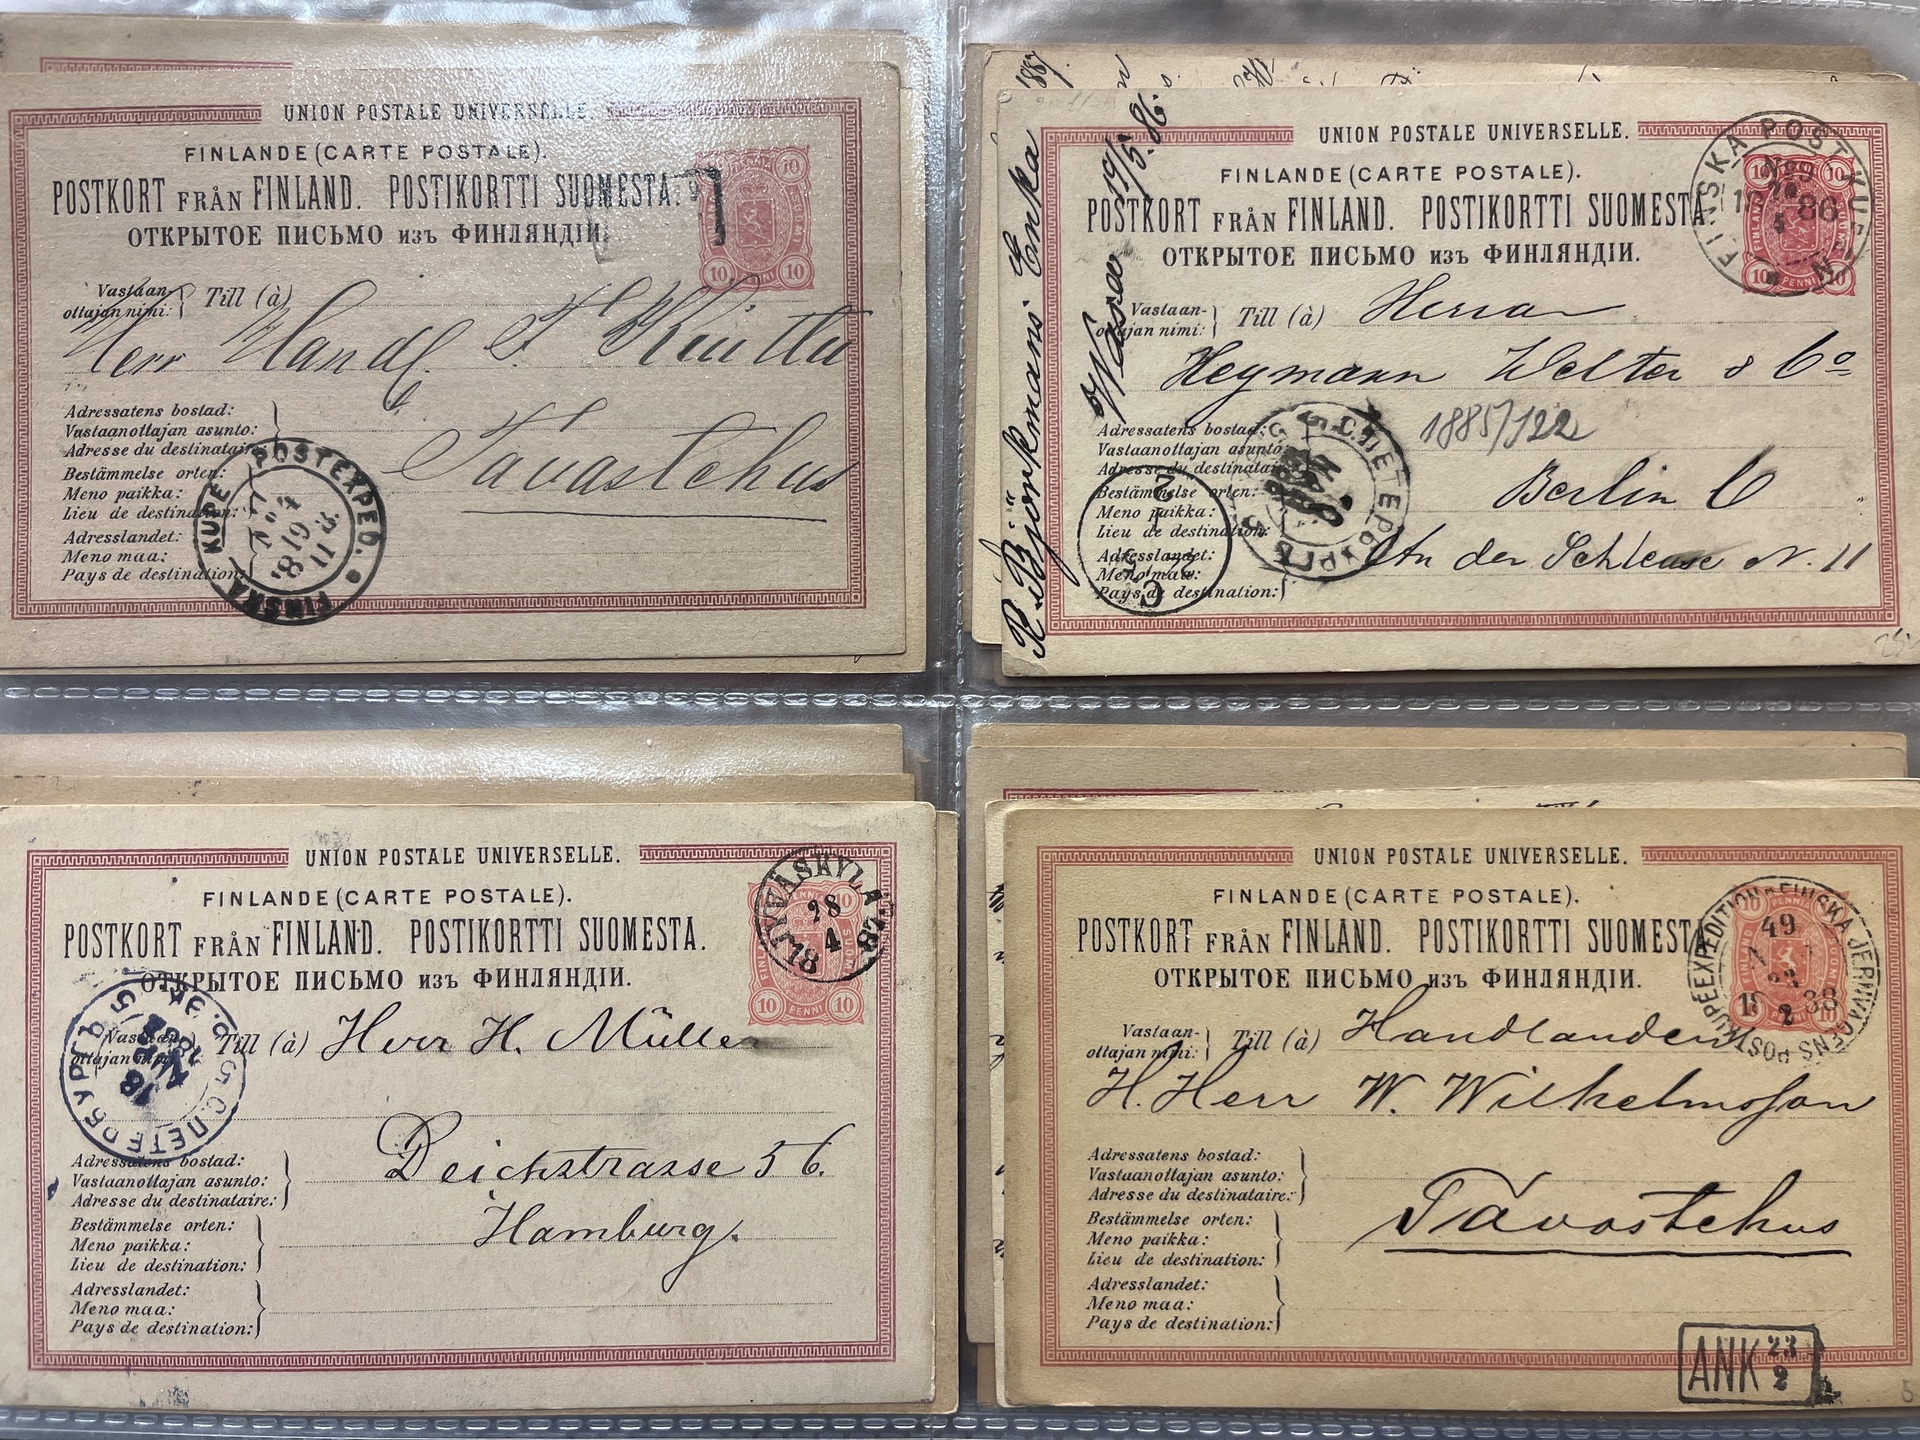 UNION POSTALE UNIVERSELLE.
FINLANDE (CARTE POSTALE).
POSTKORT FRÅN FINLAND. POSTIKORTTI SUOMESTA.
ОТКРЫТОЕ ПИСЬМО изъ ФИНЛЯНДІИ.
10 10
10 PENNI 10
Vastaan-
ottajan nimi: Till (à)
Herr Handl.
Adressatens bostad:
Vastaanottajan asunto:
Adresse du destinataire:
Tavastehus
Bestämmelse orten:
Meno paikka:
Lieu de destination:
Adresslandet:
Meno maa:
Pays de destination:
FINSKA KUPE POSTEXPED.
1887.
R. Björkmans Enka
Wasa 19/5.86.
UNION POSTALE UNIVERSELLE.
FINLANDE (CARTE POSTALE).
POSTKORT FRÅN FINLAND. POSTIKORTTI SUOMESTA
ОТКРЫТОЕ ПИСЬМО изъ ФИНЛЯНДІИ.
FINSKA POSTKUP
86
10 PENNI 10
Vastaan-
ottajan nimi: Till (à) Herrar
Heymann Welter & Co
1885/122
Adressatens bostad:
Vastaanottajan asunto:
Adresse du destinataire:
Berlin C
Bestämmelse orten:
Meno paikka:
Lieu de destination:
An der Schleuse N. 11
Adresslandet:
Meno maa:
Pays de destination:
С.ПЕТЕРБУРГЪ
UNION POSTALE UNIVERSELLE.
FINLANDE (CARTE POSTALE).
POSTKORT FRÅN FINLAND. POSTIKORTTI SUOMESTA.
ОТКРЫТОЕ ПИСЬМО изъ ФИНЛЯНДІИ.
JYVÄSKYLÄ
28
4
18 87
10 PENNI 10
Vastaan-
ottajan nimi: Till (à) Herr H. Müller
С.ПЕТЕРБУРГЪ
Deichstrasse 56.
Adressatens bostad:
Vastaanottajan asunto:
Adresse du destinataire:
Hamburg.
Bestämmelse orten:
Meno paikka:
Lieu de destination:
Adresslandet:
Meno maa:
Pays de destination:
UNION POSTALE UNIVERSELLE.
FINLANDE (CARTE POSTALE).
POSTKORT FRÅN FINLAND. POSTIKORTTI SUOMESTA
ОТКРЫТОЕ ПИСЬМО изъ ФИНЛЯНДІИ.
FINSKA JERNVÄGENS POSTKUPÉEXPEDITION
49
18 2 88
Vastaan-
ottajan nimi: Till (à) Handlanden
H. Herr W. Wilhelmsson
Adressatens bostad:
Vastaanottajan asunto:
Adresse du destinataire:
Tavastehus
Bestämmelse orten:
Meno paikka:
Lieu de destination:
Adresslandet:
Meno maa:
Pays de destination:
ANK 23
2